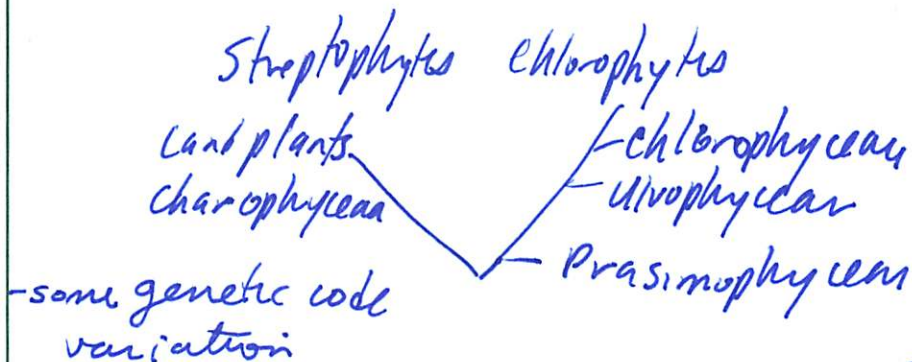 Streptophytes Chlorophytes
Land plants -Chlorophyceae
Charophyceae -Ulvophyceae
- Prasinophyceae
-some genetic code
variation